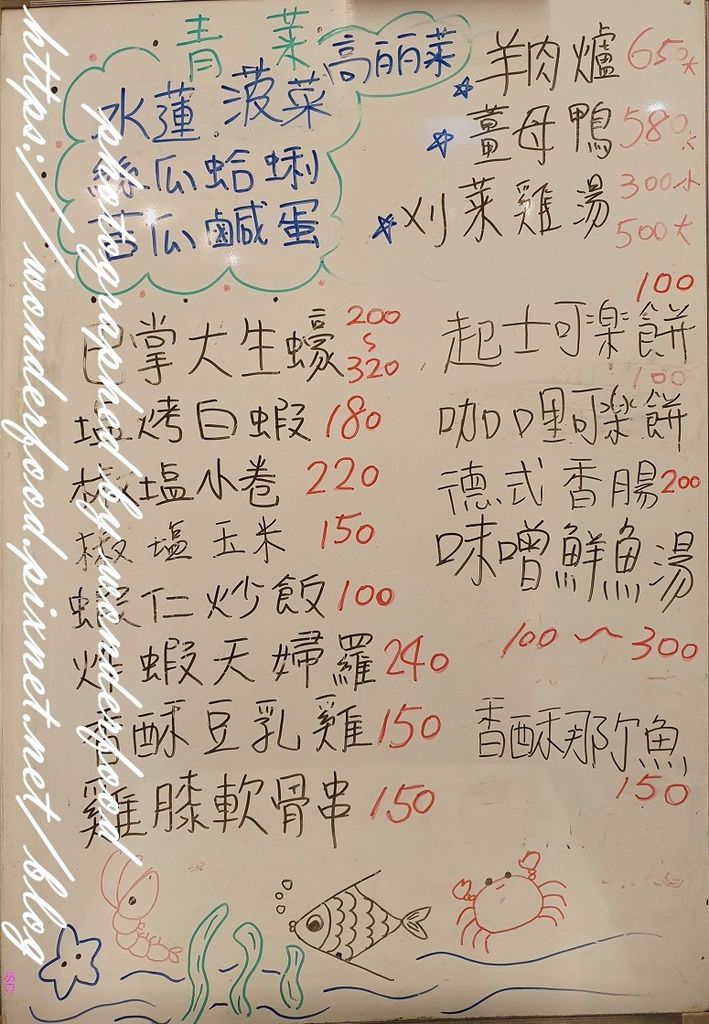 青菜
高丽菜
水蓮.菠菜
絲瓜蛤蜊
苦瓜鹹蛋
羊肉爐 650大
薑母鴨 580大
刈菜雞湯 300小
500大
巴掌大生蠔 200~320
塩烤白蝦 180
椒塩小卷 220
椒塩玉米 150
蝦仁炒飯 100
炸蝦天婦羅 240
香酥豆乳雞 150
雞膝軟骨串 150
100
起士可樂餅
100
咖哩可樂餅
德式香腸 200
味噌鮮魚湯
100~300
香酥那尔魚
150
photographed by wonderfood
https://wonderfood.pixnet.net/blog